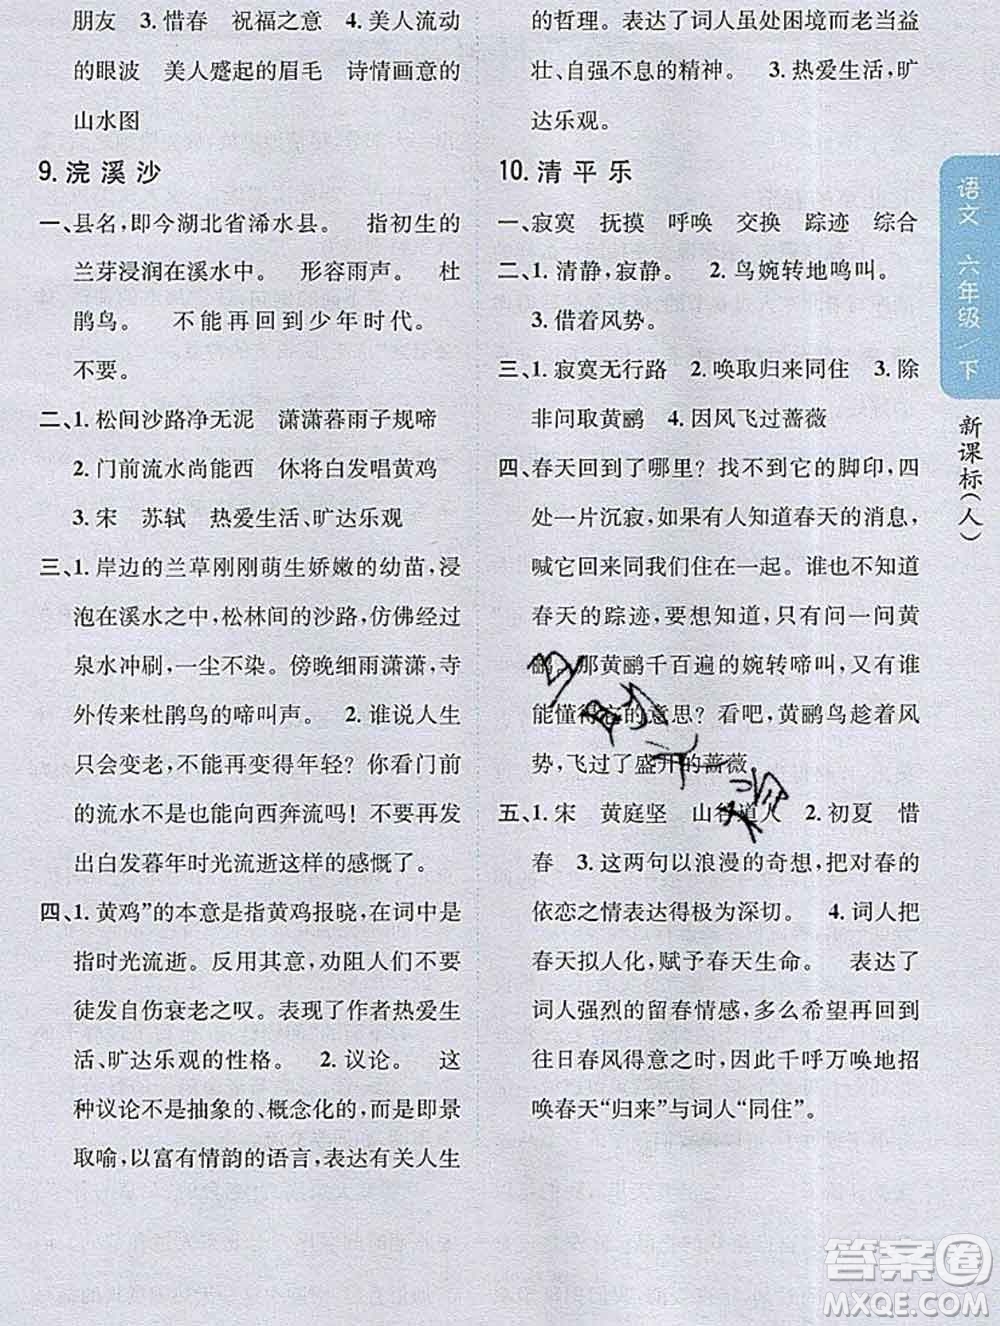 朋友　3. 惜春　祝福之意　4. 美人流动
的眼波　美人蹙起的眉毛　诗情画意的
山水图
9. 浣溪沙
一、县名,即今湖北省浠水县。　指初生的
兰芽浸润在溪水中。　形容雨声。　杜
鹃鸟。　不能再回到少年时代。
不要。
二、1. 松间沙路净无泥　潇潇暮雨子规啼
2. 门前流水尚能西　休将白发唱黄鸡
3. 宋　苏轼　热爱生活、旷达乐观
三、1. 岸边的兰草刚刚萌生娇嫩的幼苗,浸
泡在溪水之中,松林间的沙路,仿佛经过
泉水冲刷,一尘不染。傍晚细雨潇潇,寺
外传来杜鹃鸟的啼叫声。　2. 谁说人生
只会变老,不能再变得年轻?你看门前
的流水不是也能向西奔流吗!不要再发
出白发暮年时光流逝这样的感慨了。
四、1. 黄鸡”的本意是指黄鸡报晓,在词中是
指时光流逝。　反用其意,劝阻人们不要
徒发自伤衰老之叹。表现了作者热爱生
活、旷达乐观的性格。　2. 议论。　这
种议论不是抽象的、概念化的,而是即景
取喻,以富有情韵的语言,表达有关人生
的哲理。表达了词人虽处困境而老当益
壮、自强不息的精神。　3. 热爱生活,旷
达乐观。
10. 清平乐
一、寂寞　抚摸　呼唤　交换　踪迹　综合
二、1. 清静,寂静。　2. 鸟婉转地鸣叫。
3. 借着风势。
三、1. 寂寞无行路　2. 唤取归来同住　3. 除
非问取黄鹂　4. 因风飞过蔷薇
四、春天回到了哪里?找不到它的脚印,四
处一片沉寂,如果有人知道春天的消息,
喊它回来同我们住在一起。谁也不知道
春天的踪迹,要想知道,只有问一问黄
鹂。那黄鹂千百遍的婉转啼叫,又有谁
能懂得它的意思?看吧,黄鹂鸟趁着风
势,飞过了盛开的蔷薇。
五、1. 宋　黄庭坚　山谷道人　2. 初夏　惜
春　3. 这两句以浪漫的奇想,把对春的
依恋之情表达得极为深切。　4. 词人把
春天拟人化,赋予春天生命。　表达了
词人强烈的留春情感,多么希望再回到
往日春风得意之时,因此千呼万唤地招
唤春天“归来”与词人“同住”。
语文　六年级／下
新课标(人)
答案圈
MXQE.COM